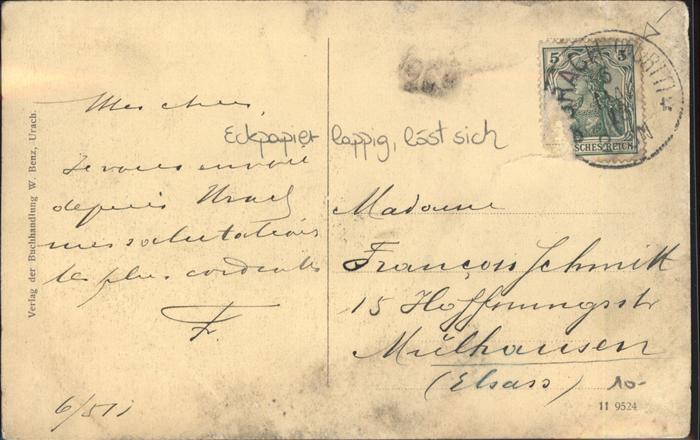 Mes chers,
Je vous envoie
depuis Urach
mes salutations
les plus cordiales
F.
6/5 11
Eckpapier lappig, löst sich
Verlag der Buchhandlung W. Benz, Urach.
5 5
DEUTSCHES REICH
URACH (WÜRTT)
Madame
François Schmitt
15 Hoffnungsstr
Mülhausen
(Elsass)
10-
11 9524